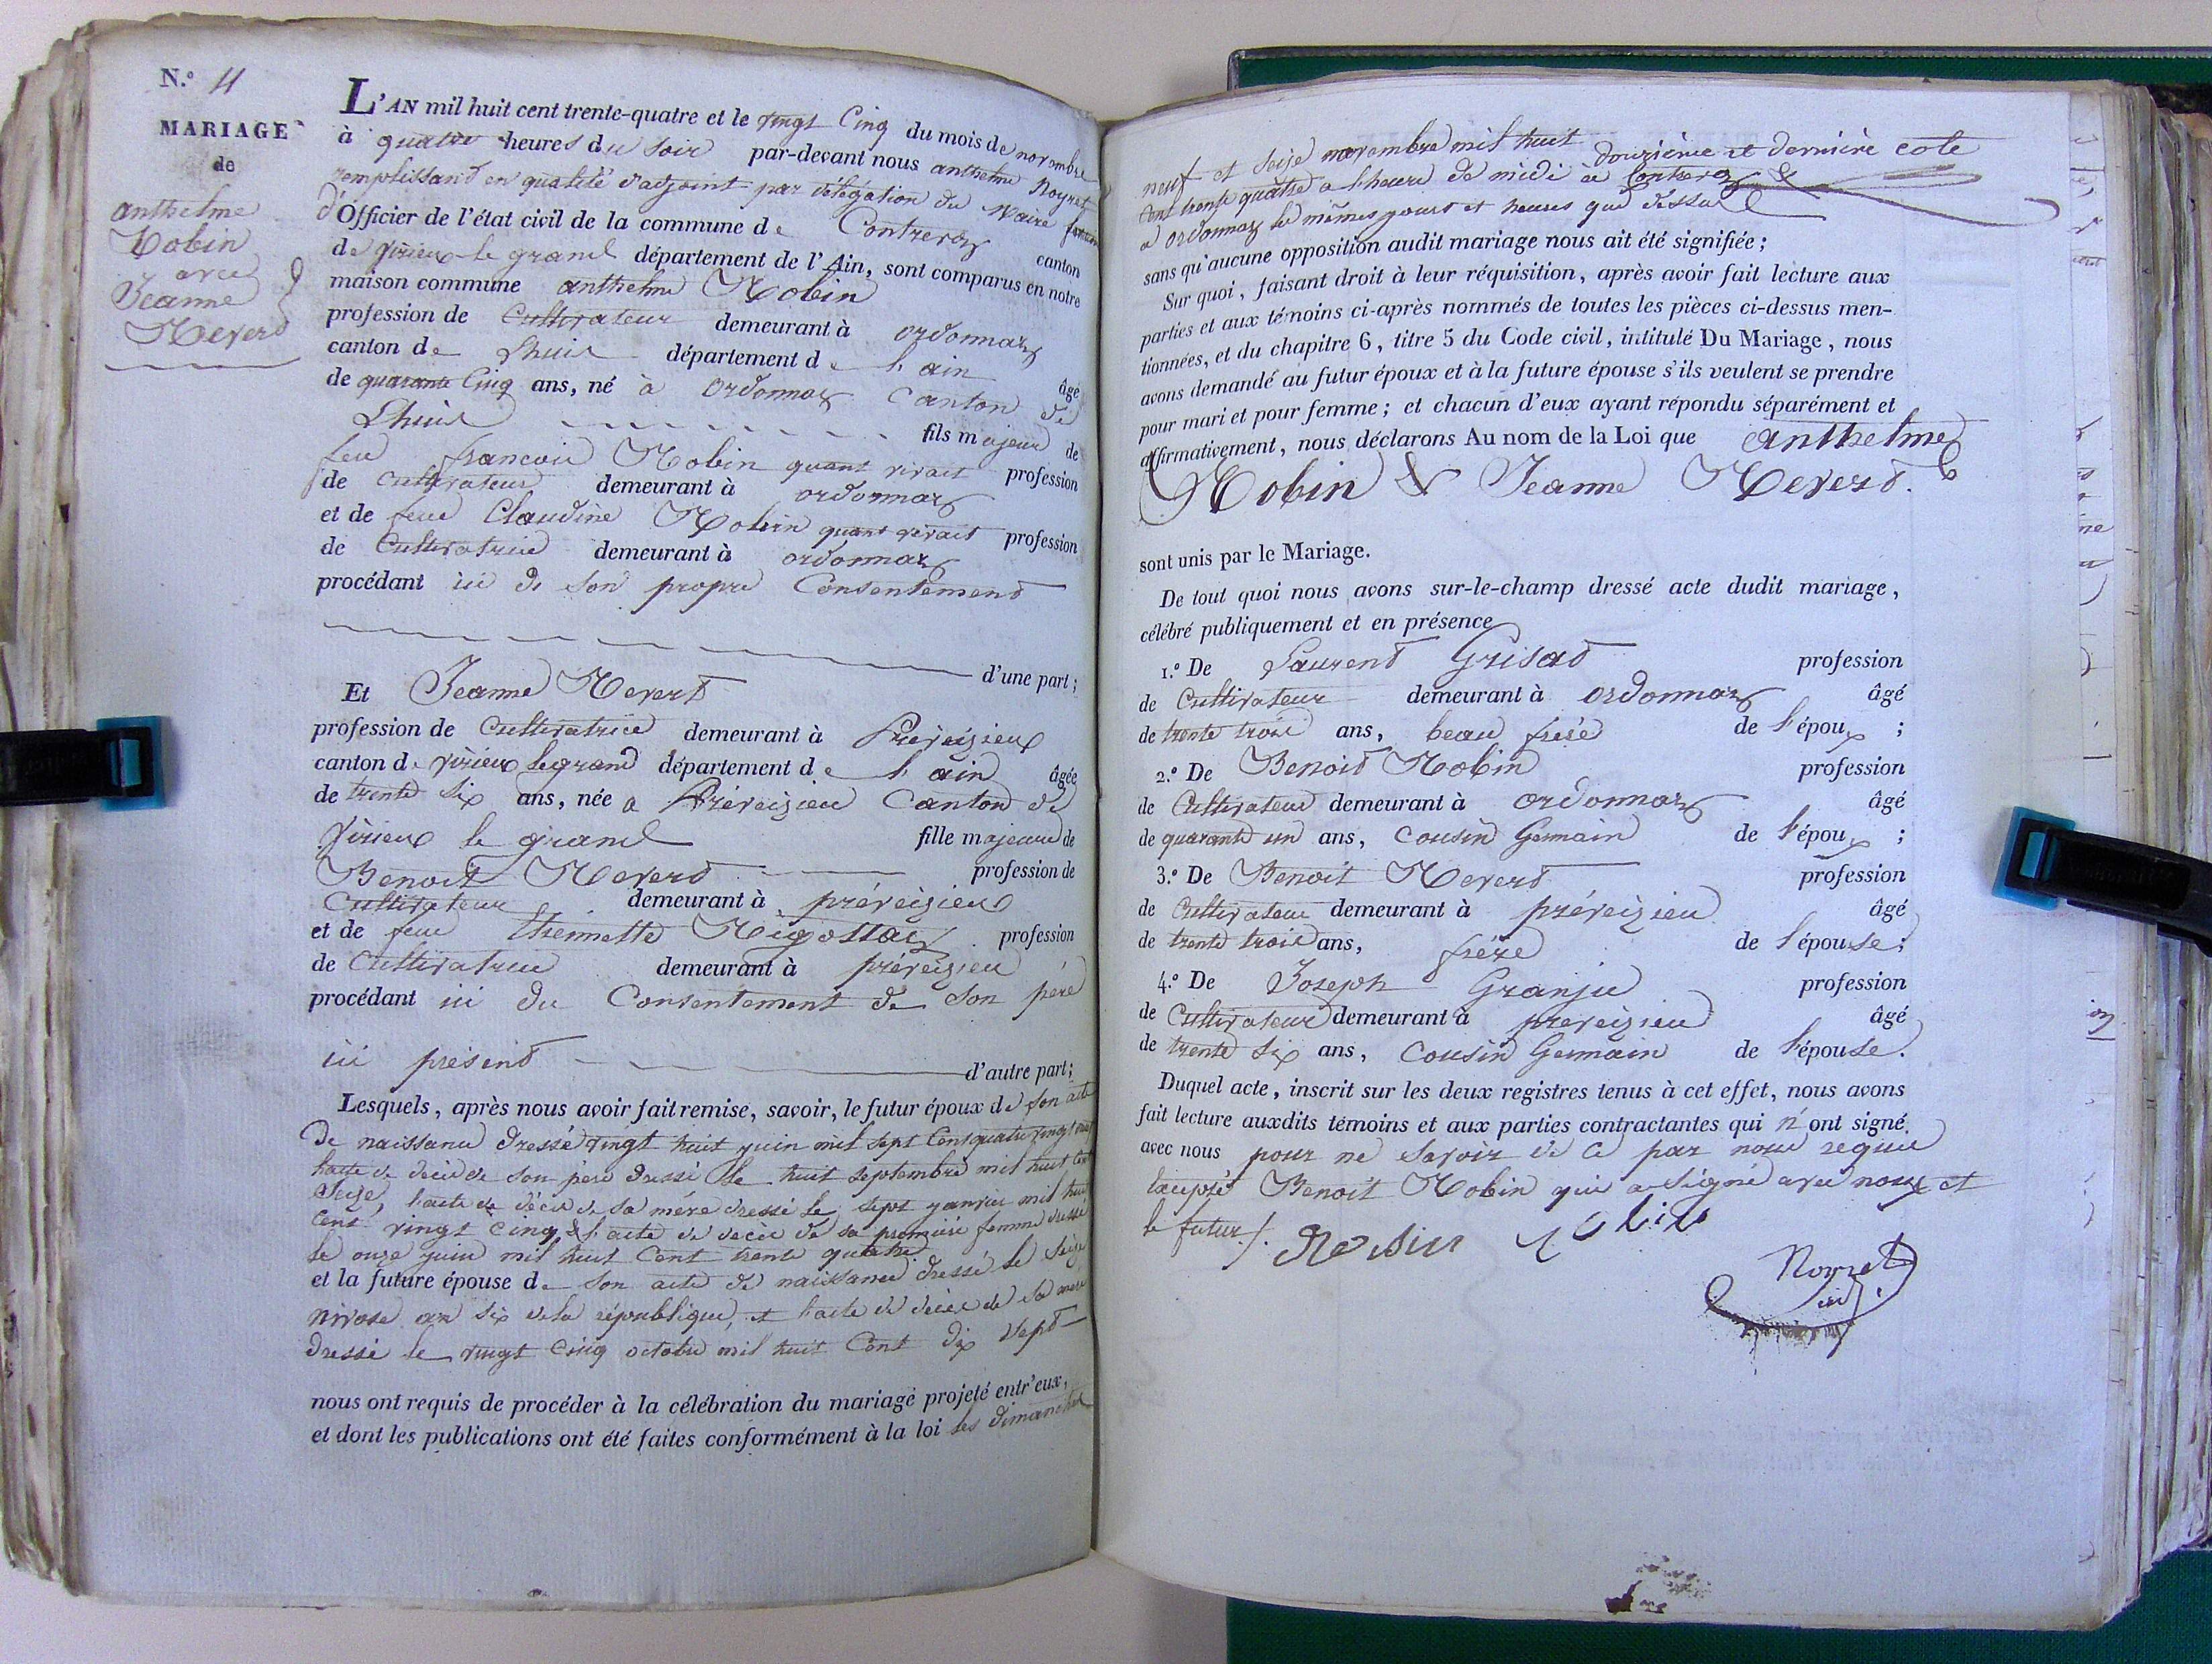 N.º 11
MARIAGE
de
anthelme
Robin
avec
Jeanne
Revert
L'AN mil huit cent trente-quatre et le vingt Cinq du mois de novembre
à quatre heures du soir par-devant nous anthelme Noyret
remplissant en qualité d'adjoint par délégation du Maire
d'Officier de l'état civil de la commune de Contrevoz canton
de virieu le grand département de l'Ain, sont comparus en notre
maison commune anthelme Robin
profession de Cultivateur demeurant à ordonnaz
canton de Lhuis département de l'ain âgé
de quarante Cinq ans, né à ordonnaz Canton de
Lhuis fils majeur de
feu francois Robin quant vivait profession
de Cultivateur demeurant à ordonnaz
et de feue Claudine Robin quant vivait profession
de Cultivatrice demeurant à ordonnaz
procédant ici de son propre Consentement
d'une part;
Et Jeanne Revert
profession de Cultivatrice demeurant à Préveizieu
canton de virieu le grand département de l'ain âgée
de trente Six ans, née a Préveizieu Canton de
virieu le grand fille majeure de
Benoit Revert profession de
Cultivateur demeurant à préveizieu
et de feue thiennette Rigottaz profession
de Cultivatrice demeurant à préveizieu
procédant ici du Consentement de son père
ici présent
d'autre part;
Lesquels, après nous avoir fait remise, savoir, le futur époux de son acte
de naissance dressé vingt huit juin mil sept Cent quatre vingt neuf
l'acte de décès de son père dressé le huit septembre mil huit Cent
Seize, l'acte de décès de sa mère dressé le sept janvier mil huit
Cent vingt Cinq, & l'acte de décès de sa première femme dressé
le onze juin mil huit Cent trente quatre
et la future épouse de son acte de naissance dressé le Seize
nivose an Six de la république, et l'acte de décès de sa mère
dressé le vingt Cinq octobre mil huit Cent dix Sept
nous ont requis de procéder à la célébration du mariage projeté entr'eux,
et dont les publications ont été faites conformément à la loi les dimanches
neuf et seize novembre mil huit douzième et dernière cote
Cent trente quatre a l'heure de midi à Contrevoz &
a ordonnaz les mêmes jours et heures que dessus
sans qu'aucune opposition audit mariage nous ait été signifiée;
Sur quoi, faisant droit à leur réquisition, après avoir fait lecture aux
parties et aux témoins ci-après nommés de toutes les pièces ci-dessus men-
tionnées, et du chapitre 6, titre 5 du Code civil, intitulé Du Mariage, nous
avons demandé au futur époux et à la future épouse s'ils veulent se prendre
pour mari et pour femme; et chacun d'eux ayant répondu séparément et
affirmativement, nous déclarons Au nom de la Loi que anthelme
Robin & Jeanne Revert.
sont unis par le Mariage.
De tout quoi nous avons sur-le-champ dressé acte dudit mariage,
célébré publiquement et en présence
1.º De Laurent Grisat profession
de Cultivateur demeurant à ordonnaz âgé
de trente trois ans, beau frère de l'époux ;
2.º De Benoit Robin profession
de Cultivateur demeurant à ordonnaz âgé
de quarante un ans, cousin Germain de l'époux ;
3.º De Benoit Revert profession
de Cultivateur demeurant à préveizieu âgé
de trente trois ans, frère de l'épouse ;
4.º De Joseph Granju profession
de Cultivateur demeurant à preveizieu âgé
de trente six ans, Cousin Germain de l'épouse.
Duquel acte, inscrit sur les deux registres tenus à cet effet, nous avons
fait lecture auxdits témoins et aux parties contractantes qui n'ont signé
avec nous pour ne savoir de ce par nous requis
excepté Benoit Robin qui a signé avec nous et
le futur ./.
Robin Robin
Noyret